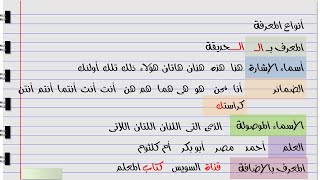 أنواع المعرفة
المعرف بـ الـ الـحديقة
أسماء الإشارة هذا هذه هذان هاتان هؤلاء ذلك تلك أولئك
الضمائر أنا نحن هو هي هما هم هن أنت أنت أنتما أنتم أنتن
كراستك
الأسماء الموصولة الذي التي اللذان اللتان اللاتي
العلم أحمد مصر أبو بكر أم كلثوم
المعرف بالإضافة قناة السويس كتاب المعلم